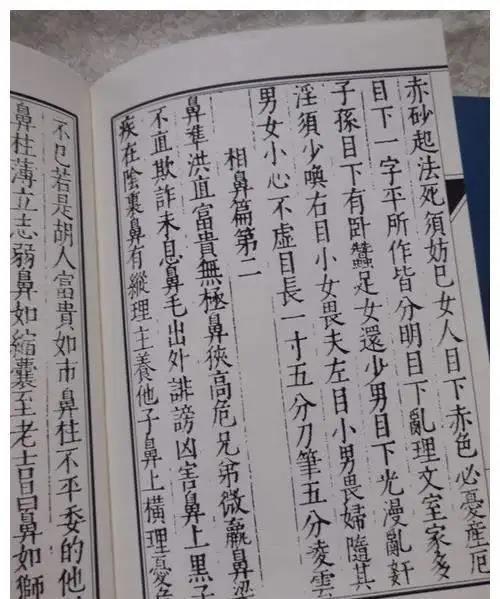 赤砂起法死須妨巳女人目下赤色必憂產厄
目下一字平所作皆分明目下亂理文室家多
子孫目下有臥蠶足女還少男目下光漫亂奸
淫須少喚右目小女畏夫左目小男畏婦隨其
男女小心不虛目長一寸五分刀筆五分凌雲
相鼻篇第二
鼻準洪直富貴無極鼻狹高危兄弟微羸鼻梁
不直欺詐未息鼻毛出外誹謗凶害鼻上黑子
疾在陰裏鼻有縱理主養他子鼻上橫理憂
不巳若是胡人富貴如市鼻柱不平委的他
鼻柱薄立志弱鼻如縮囊至老吉昌鼻如獅